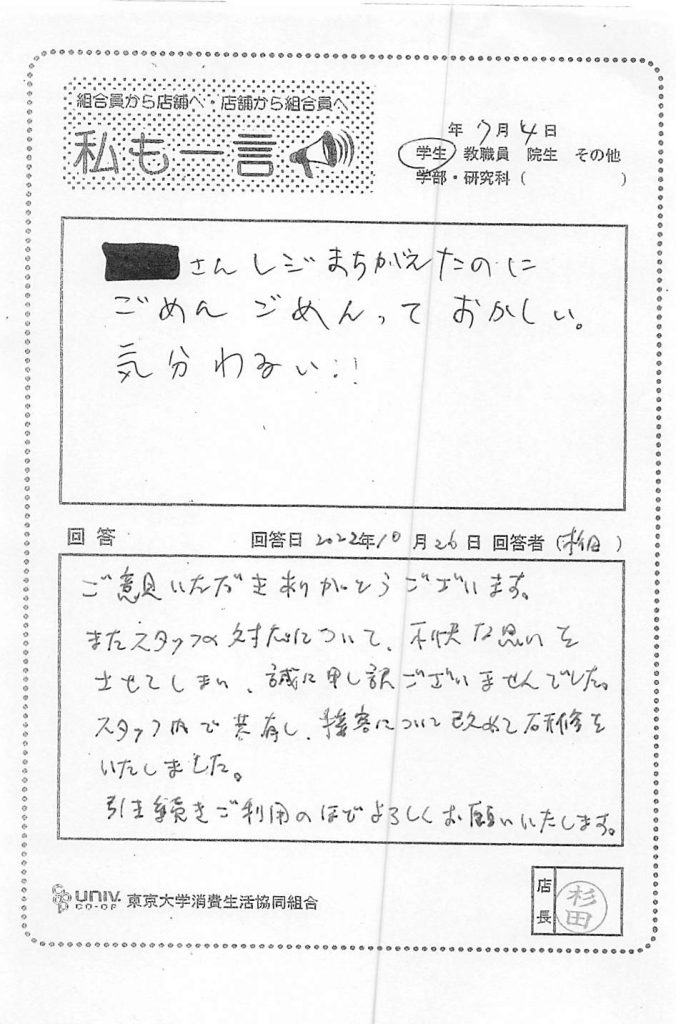 組合員から店舗へ・店舗から組合員へ
私も一言
年 7月 4日
学生 教職員 院生 その他
学部・研究科 ( )
さん レジまちがえたのに
ごめん ごめんって おかしい。
気分わるい!!
回答
回答日 2022年10月26日 回答者 (杉田)
ご意見いただきありがとうございます。
またスタッフの対応について、不快な思いを
させてしまい、誠に申し訳ございませんでした。
スタッフ内で共有し、接客について改めて研修を
いたしました。
引き続きご利用のほどよろしくお願いいたします。
UNIV. CO-OP 東京大学消費生活協同組合
店長 杉田